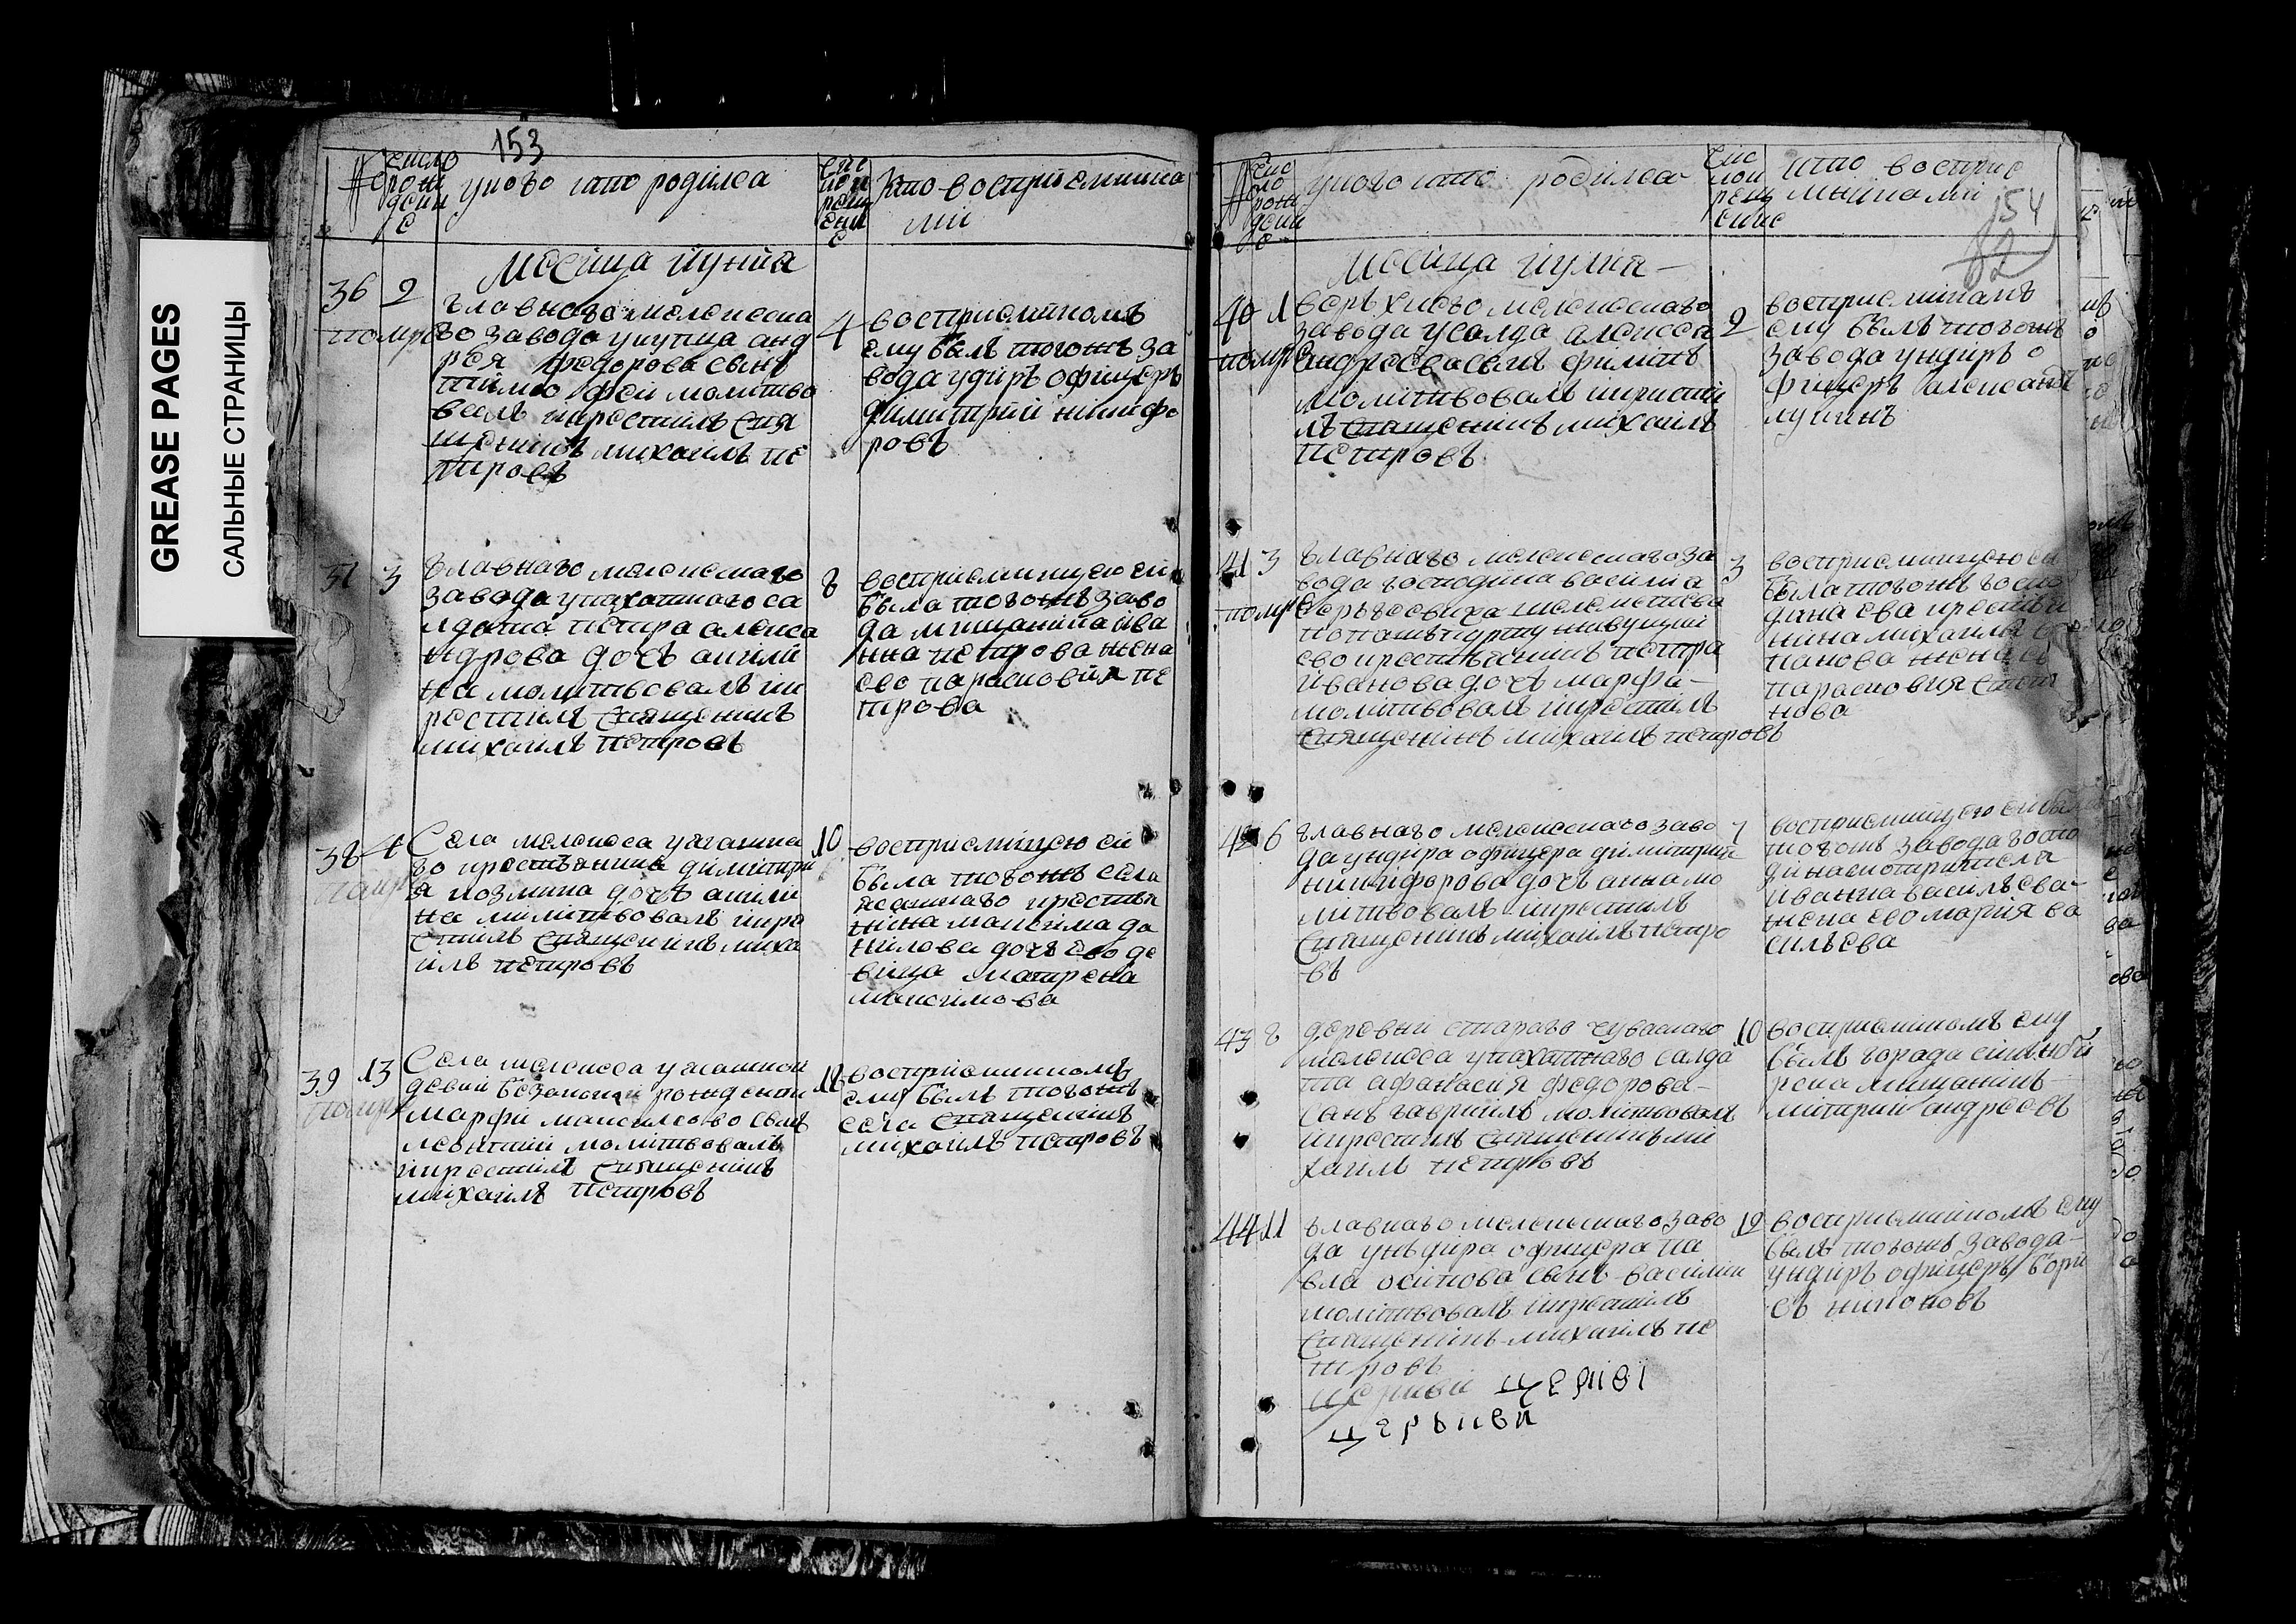 GREASE PAGES
САЛЬНЫЕ СТРАНИЦЫ
153
№
число
рожд
дени
е
у кого кто родился
чис
ло к
рещ
ени
е
Кто восприемника
ми
Месяца иуния
36 2
помре
главного мелекеска
го завода у купца анд
рея федорова сынъ
тимофей молитво
валъ и крестилъ свя
щенникъ михаилъ пе
тровъ
4
восприемникомъ
ему былъ тогожъ за
вода ундиръ офицеръ
димитрий никифо
ровъ
37 3
главнаго мелекескаго
завода у пахотного са
лдата петра алекса
ндрова дочь акили
на молитвовалъ и к
рестилъ священникъ
михаилъ петровъ
8
восприемницею ей
была тогожъ заво
да мещанина ива
нна петрова жена
ево парасковия пе
трова
38 4
села мелекеса у ясашна
го крестьянина димитри
я козмина дочь акили
на милитвовалъ и кре
стилъ священникъ миха
илъ петровъ
10
восприемницею ей
была тогожъ села
ясашнаго крестья
нина максима да
нилова дочь ево де
вица матрена
максимова
39 13
помре
Села мелекеса у ясашной
девки беззаконно рожденой
марфи максимово сынъ
леонтий молитвовалъ
и крестилъ священникъ
михаилъ петровъ
18
восприемникомъ
ему былъ тогожъ
села священникъ
михаилъ петровъ
№
Чис
ло
рож
дени
е
у кого кто родился
Чис
ло к
рещ
ение
кто восприе
мниками
154
82
Месяца иулия
40 1
помре
верхнего мелекескаго
завода у салда алексея
андреева сынъ филипъ
молитвовалъ и крести
лъ священникъ михаилъ
петровъ
2
восприемникамъ
ему былъ тогожъ
завода ундиръ о
фицеръ александ
лукинъ
41 3
помре
главнаго мелекескаго за
вода господина василиа
сергеевича
по пашпурту живущий
ево крестьянинъ петра
иванова дочь марфа
молитвовалъ и крестилъ
священникъ михаилъ петровъ
3
восприемницею ей
была тогожъ госпо
дина ева крестья
нина михаила
панова жена ево
парасковия степа
нова
42 6
главнаго мелекескаго заво
да ундира офицера димитрия
никифорова дочь анна мо
литвовалъ и крестилъ
священникъ михаилъ петро
въ
7
восприемницею ей бы
тогожъ завода госпо
дина
иванна васильева
жена ево мария ва
сильева
43 8
деревни стараго чуваскаго
мелекеса у пахатнаго салда
та афанасия федорова
санъ гавриилъ молитвовалъ
и крестилъ священникъ ми
хаилъ петровъ
10
восприемникомъ ему
былъ города синьби
рска мещанинъ
митрий андреевъ
44 11
главнаго мелекескаго заво
да уньдира офицера па
вла осипова сынъ василии
молитвовалъ и крестилъ
священникъ михаилъ пе
тровъ
12
восприемникомъ ему
былъ тогожъ завода
ундиръ офицеръ бори
съ никоновъ
церкви церкви
церькви